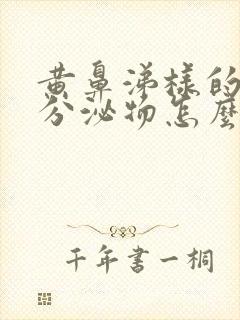 黄鼻涕样的
分泌物怎麼
千年書一桐